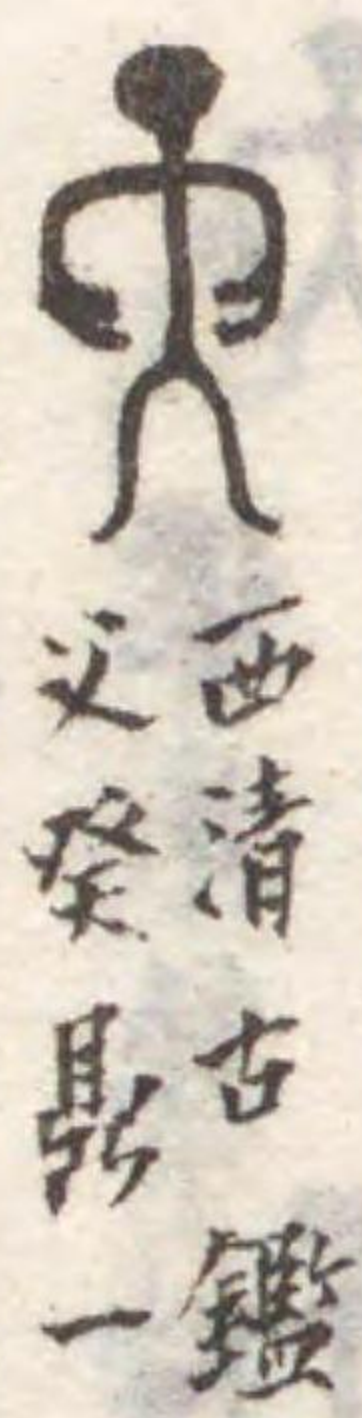 西清古鑑
父癸鼎一